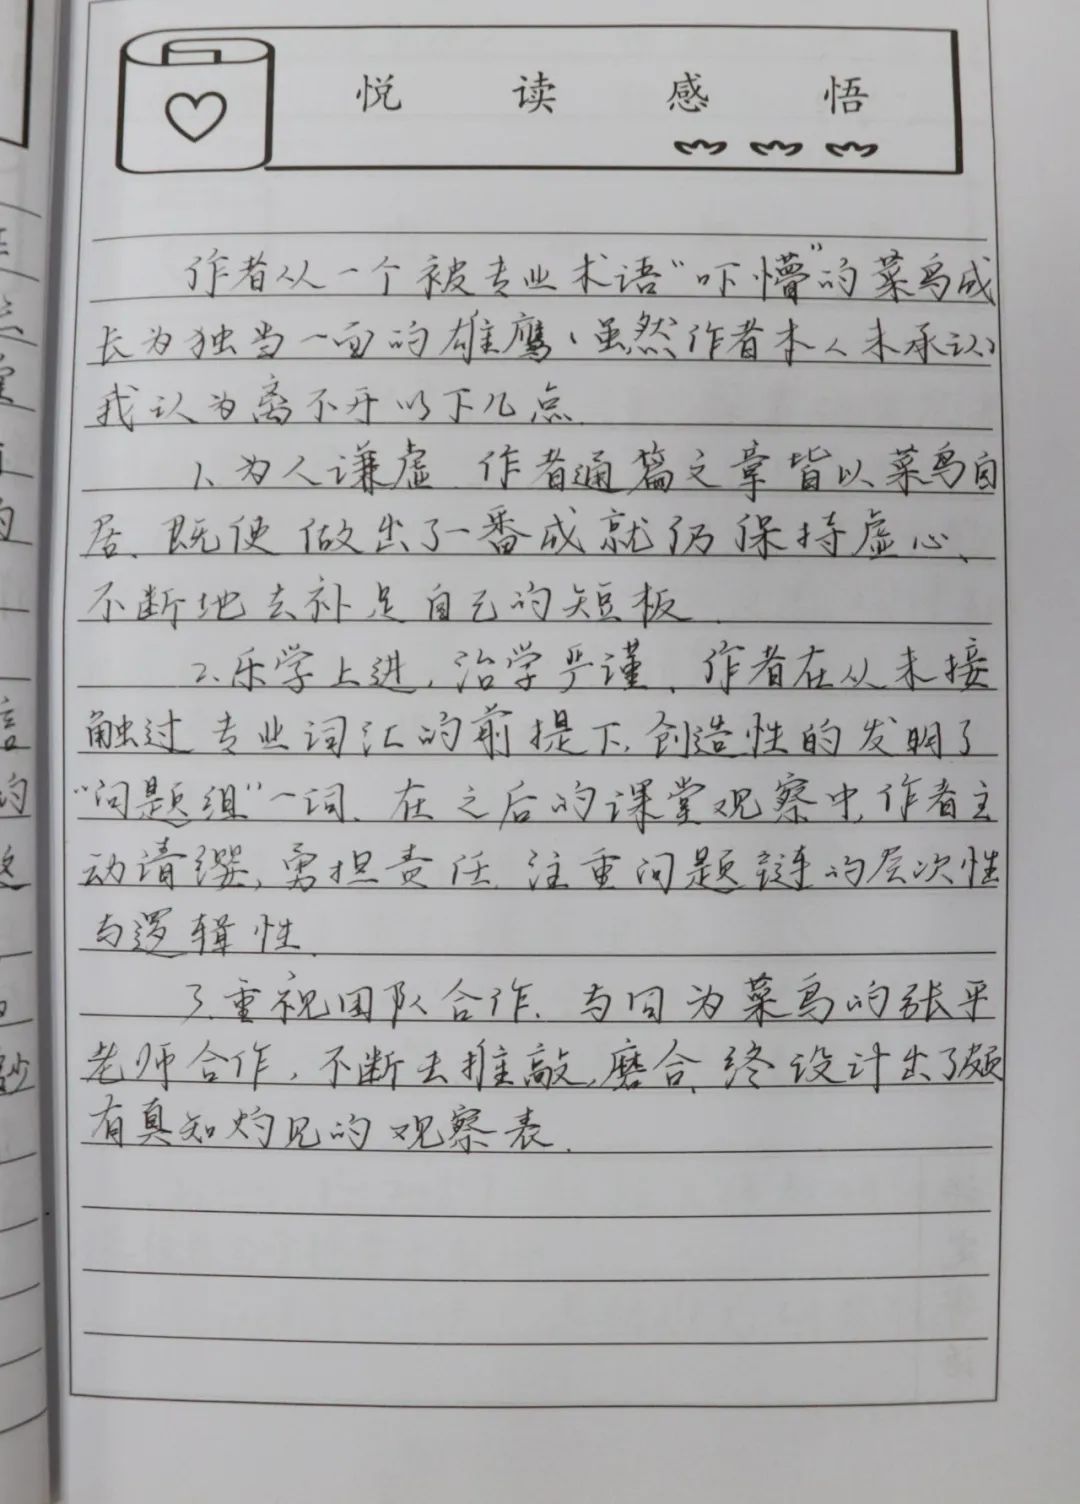 悦读感悟
作者从一个被专业术语“吓懵”的菜鸟成
长为独当一面的雄鹰（虽然作者本人未承认）
我认为离不开以下几点.
1、为人谦虚.作者通篇文章皆以菜鸟自
居、既使做出了一番成就仍保持虚心、
不断地去补足自己的短板.
2、乐学上进，治学严谨、作者在从未接
触过专业词汇的前提下，创造性的发明了
“问题组”一词.在之后的课堂观察中，作者主
动请缨，勇担责任.注重问题链的层次性
与逻辑性.
3、重视团队合作.与同为菜鸟的张平
老师合作，不断去推敲，磨合，终设计出了颇
有真知灼见的观察表.